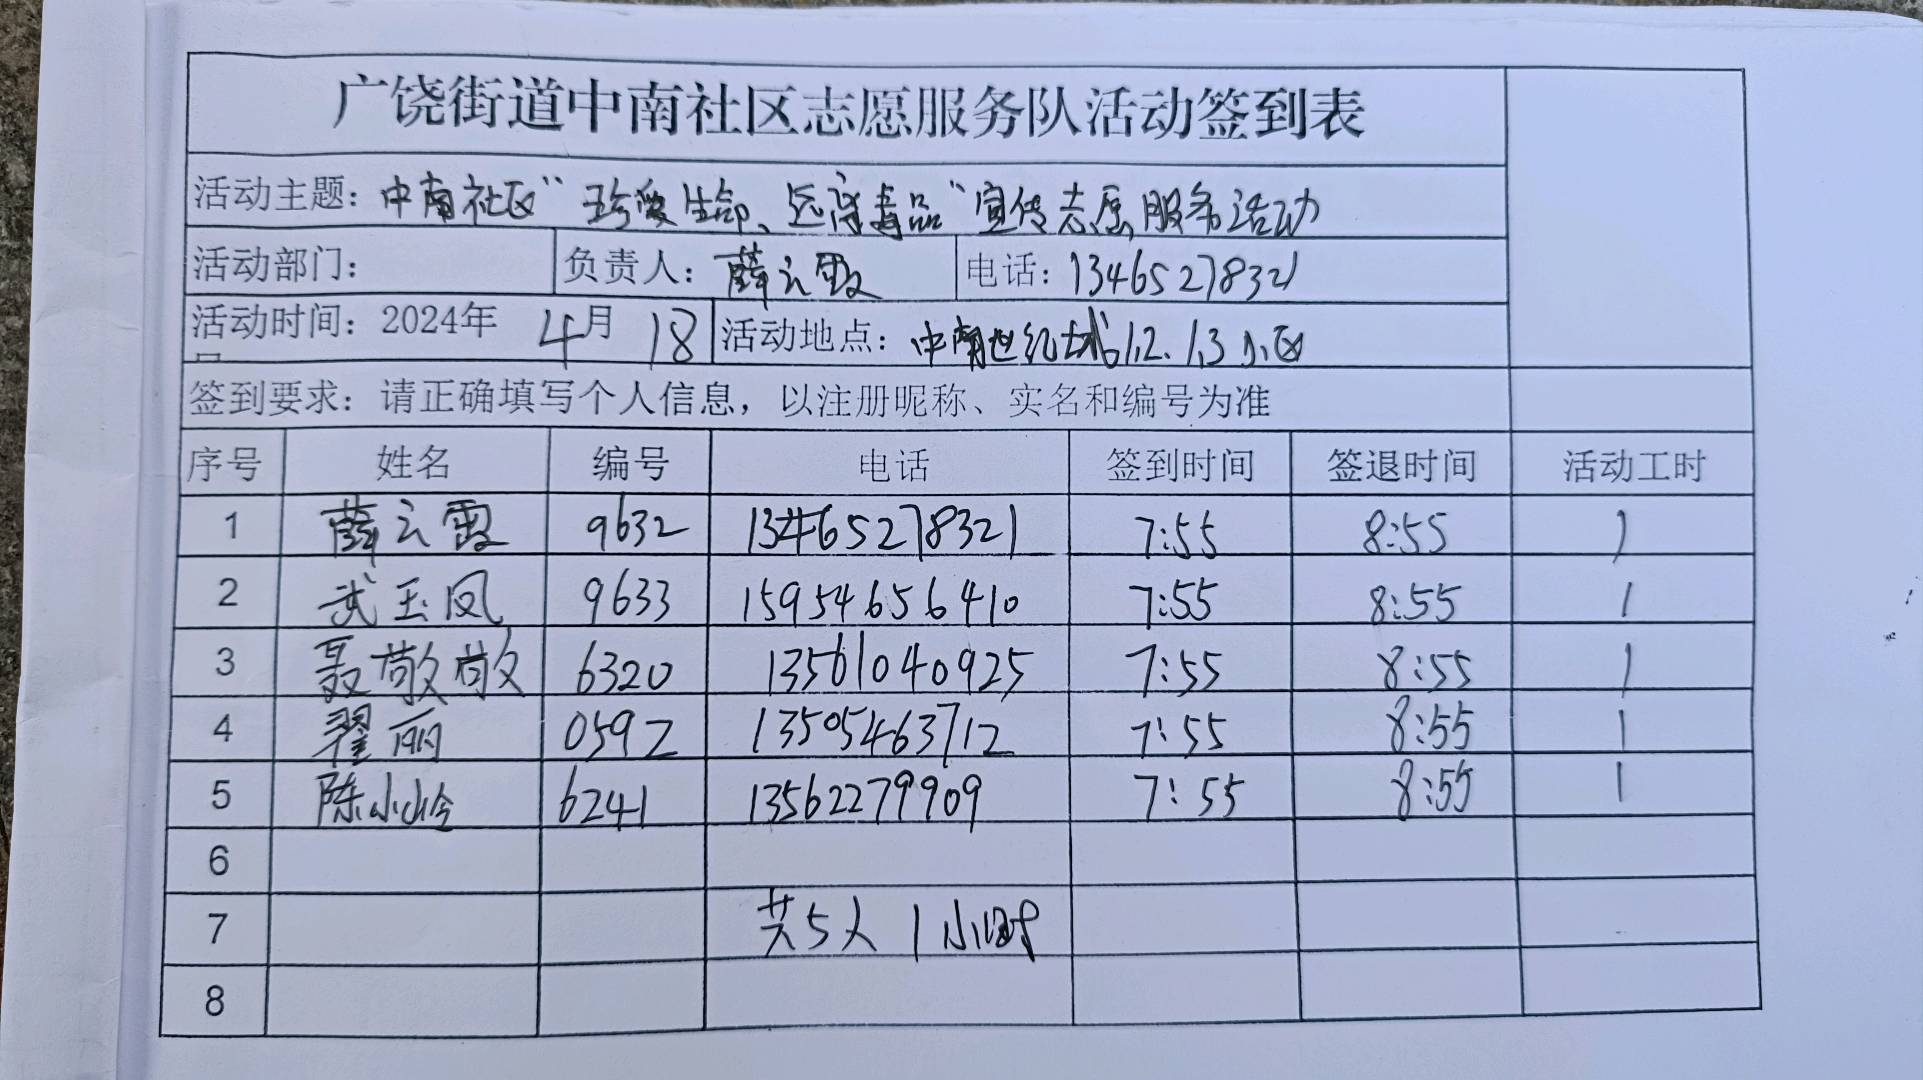 广饶街道中南社区志愿服务队活动签到表
活动主题：中南社区“珍爱生命、远离毒品”宣传志愿服务活动
活动部门： 负责人：薛云霞 电话：13465278321
活动时间：2024年 4月 18 活动地点：中南世纪城1.2.1.3小区
签到要求：请正确填写个人信息，以注册昵称、实名和编号为准
序号 姓名 编号 电话 签到时间 签退时间 活动工时
1 薛云霞 9632 13465278321 7:55 8:55 1
2 武玉凤 9633 15954656410 7:55 8:55 1
3 聂敬敬 6320 13561040925 7:55 8:55 1
4 翟丽 0592 13505463712 7:55 8:55 1
5 陈小岭 6241 13562279909 7:55 8:55 1
6
7 共5人 1小时
8